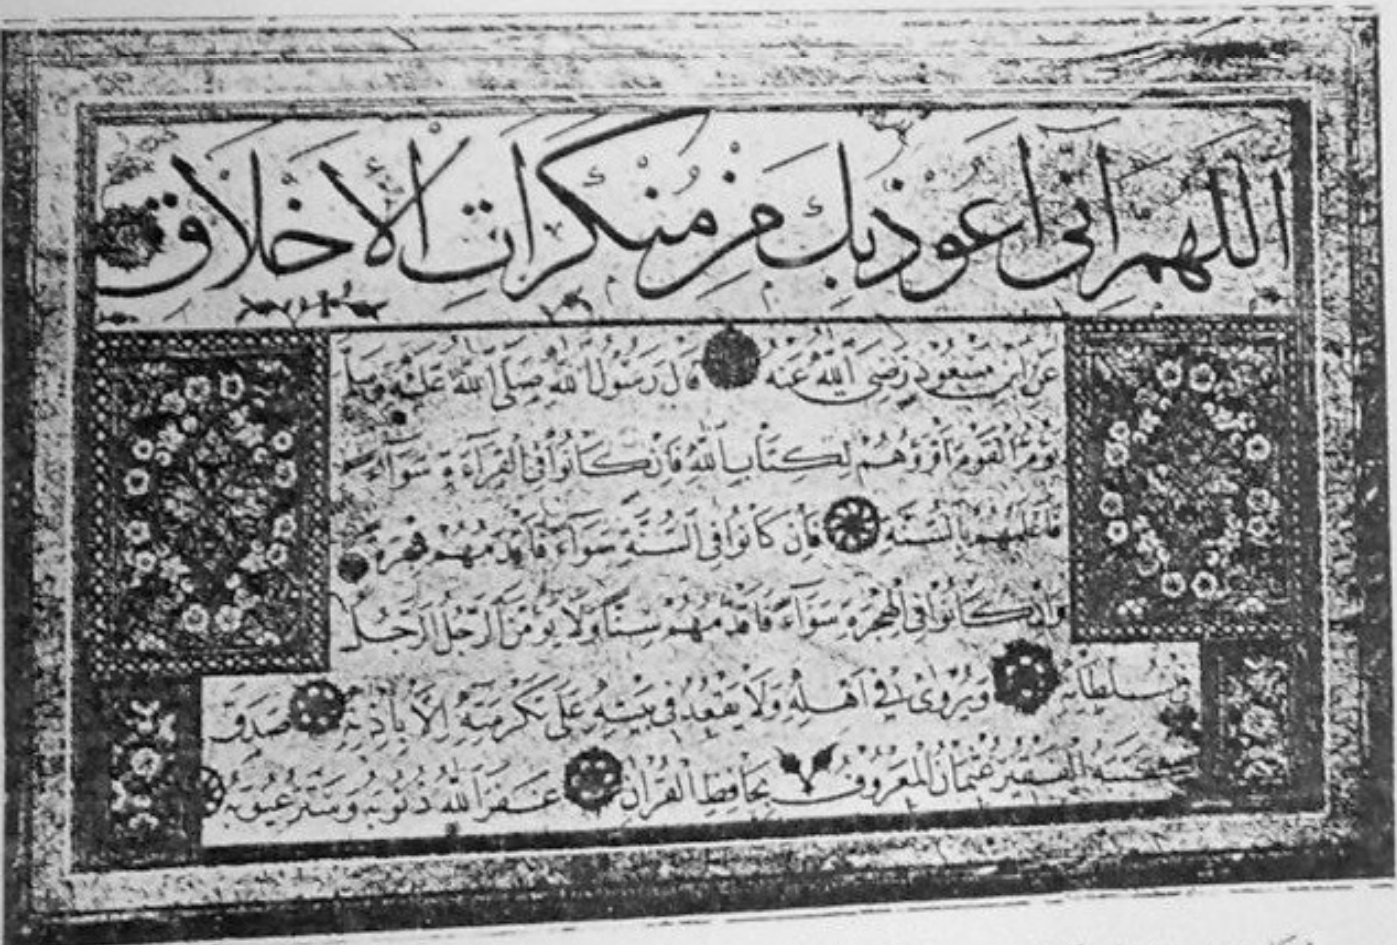 اللهم اني اعوذ بك من منكرات الاخلاق
عن ابن مسعود رضي الله عنه قال رسول الله صلى الله عليه وسلم
يؤم القوم اقرؤهم لكتاب الله فان كانوا في القرآءة سوآء
فاعلمهم بالسنة فان كانوا في السنة سوآء فاقدمهم هجرة
وان كانوا في الهجرة سوآء فاقدمهم سنا ولا يؤمن الرجل الرجل
في سلطانه ويروى في اهله ولا يقعد في بيته على تكرمته الا باذنه صدق
كتبه الفقير عثمان المعروف بحافظ القران غفر الله ذنوبه وستر عيوبه